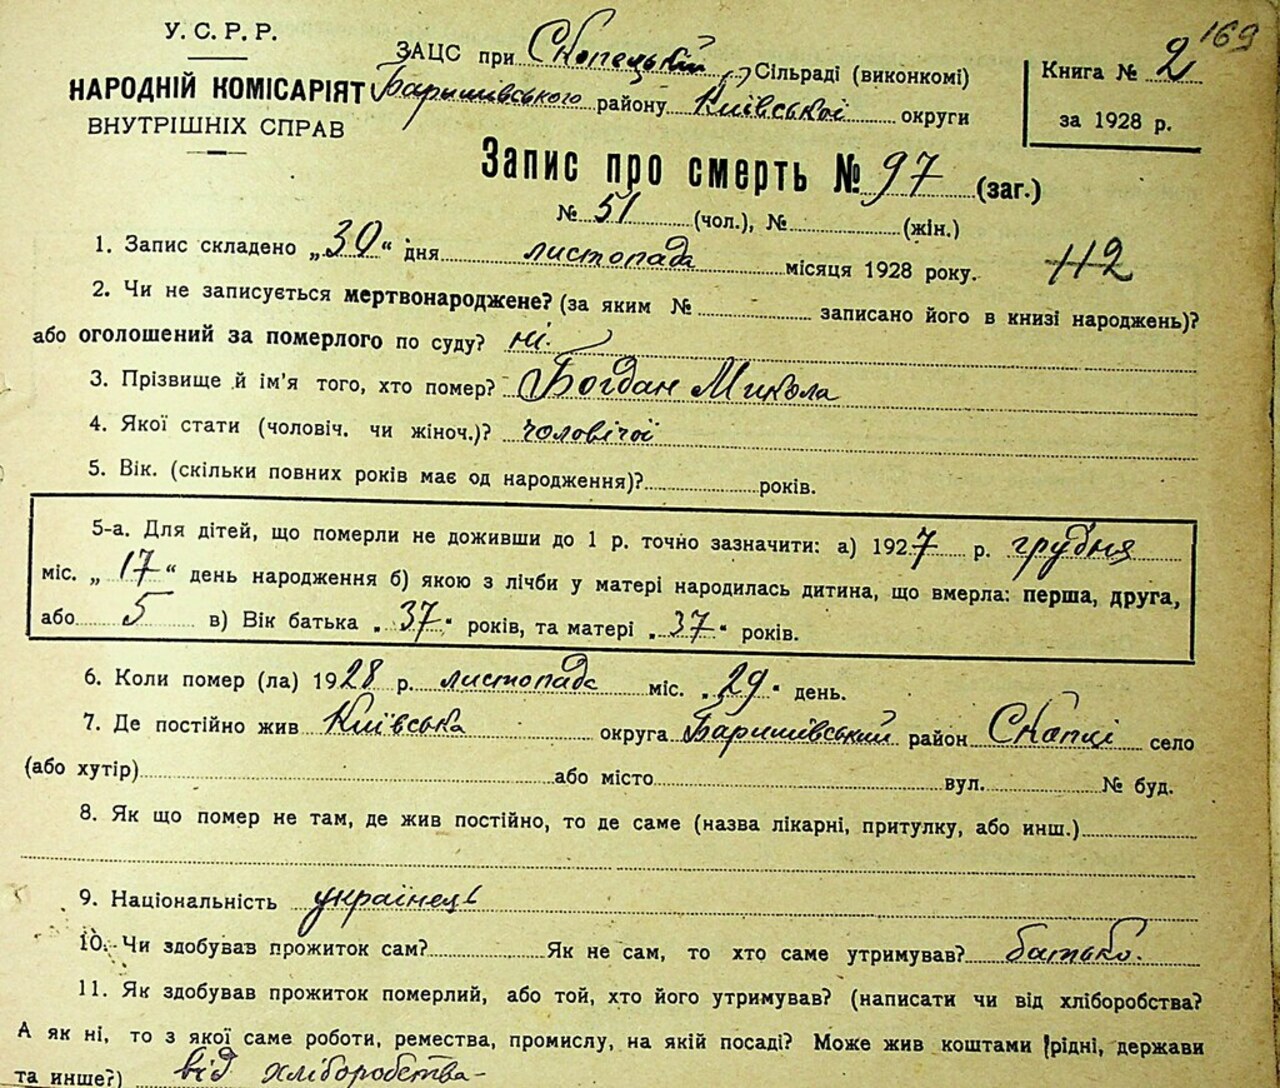 169
У. С. Р. Р.
НАРОДНІЙ КОМІСАРІЯТ
ВНУТРІШНІХ СПРАВ
ЗАЦС при Скопецькій Сільраді (виконкомі)
Баришівського району Київської округи
Книга № 2
за 1928 р.
Запис про смерть № 97 (заг.)
№ 51 (чол.), № (жін.)
112
1. Запис складено „30“ дня листопада місяця 1928 року.
2. Чи не записується мертвонароджене? (за яким № записано його в книзі народжень)?
або оголошений за померлого по суду? ні.
3. Прізвище й ім'я того, хто помер? Богдан Микола
4. Якої стати (чоловіч. чи жіноч.)? чоловічої
5. Вік. (скільки повних років має од народження)? років.
5-а. Для дітей, що померли не доживши до 1 р. точно зазначити: а) 1927 р. грудня
міс. „17“ день народження б) якою з лічби у матері народилась дитина, що вмерла: перша, друга,
або 5 в) Вік батька „37“ років, та матері „37“ років.
6. Коли помер (ла) 1928 р. листопада міс. „29“ день.
7. Де постійно жив Київська округа Баришівський район Скопці село
(або хутір) або місто вул. № буд.
8. Як що помер не там, де жив постійно, то де саме (назва лікарні, притулку, або инш.)
9. Національність українець
10. Чи здобував прожиток сам? Як не сам, то хто саме утримував? батько.
11. Як здобував прожиток померлий, або той, хто його утримував? (написати чи від хліборобства?
А як ні, то з якої саме роботи, ремества, промислу, на якій посаді? Може жив коштами рідні, держави
та инше?) від хліборобства-